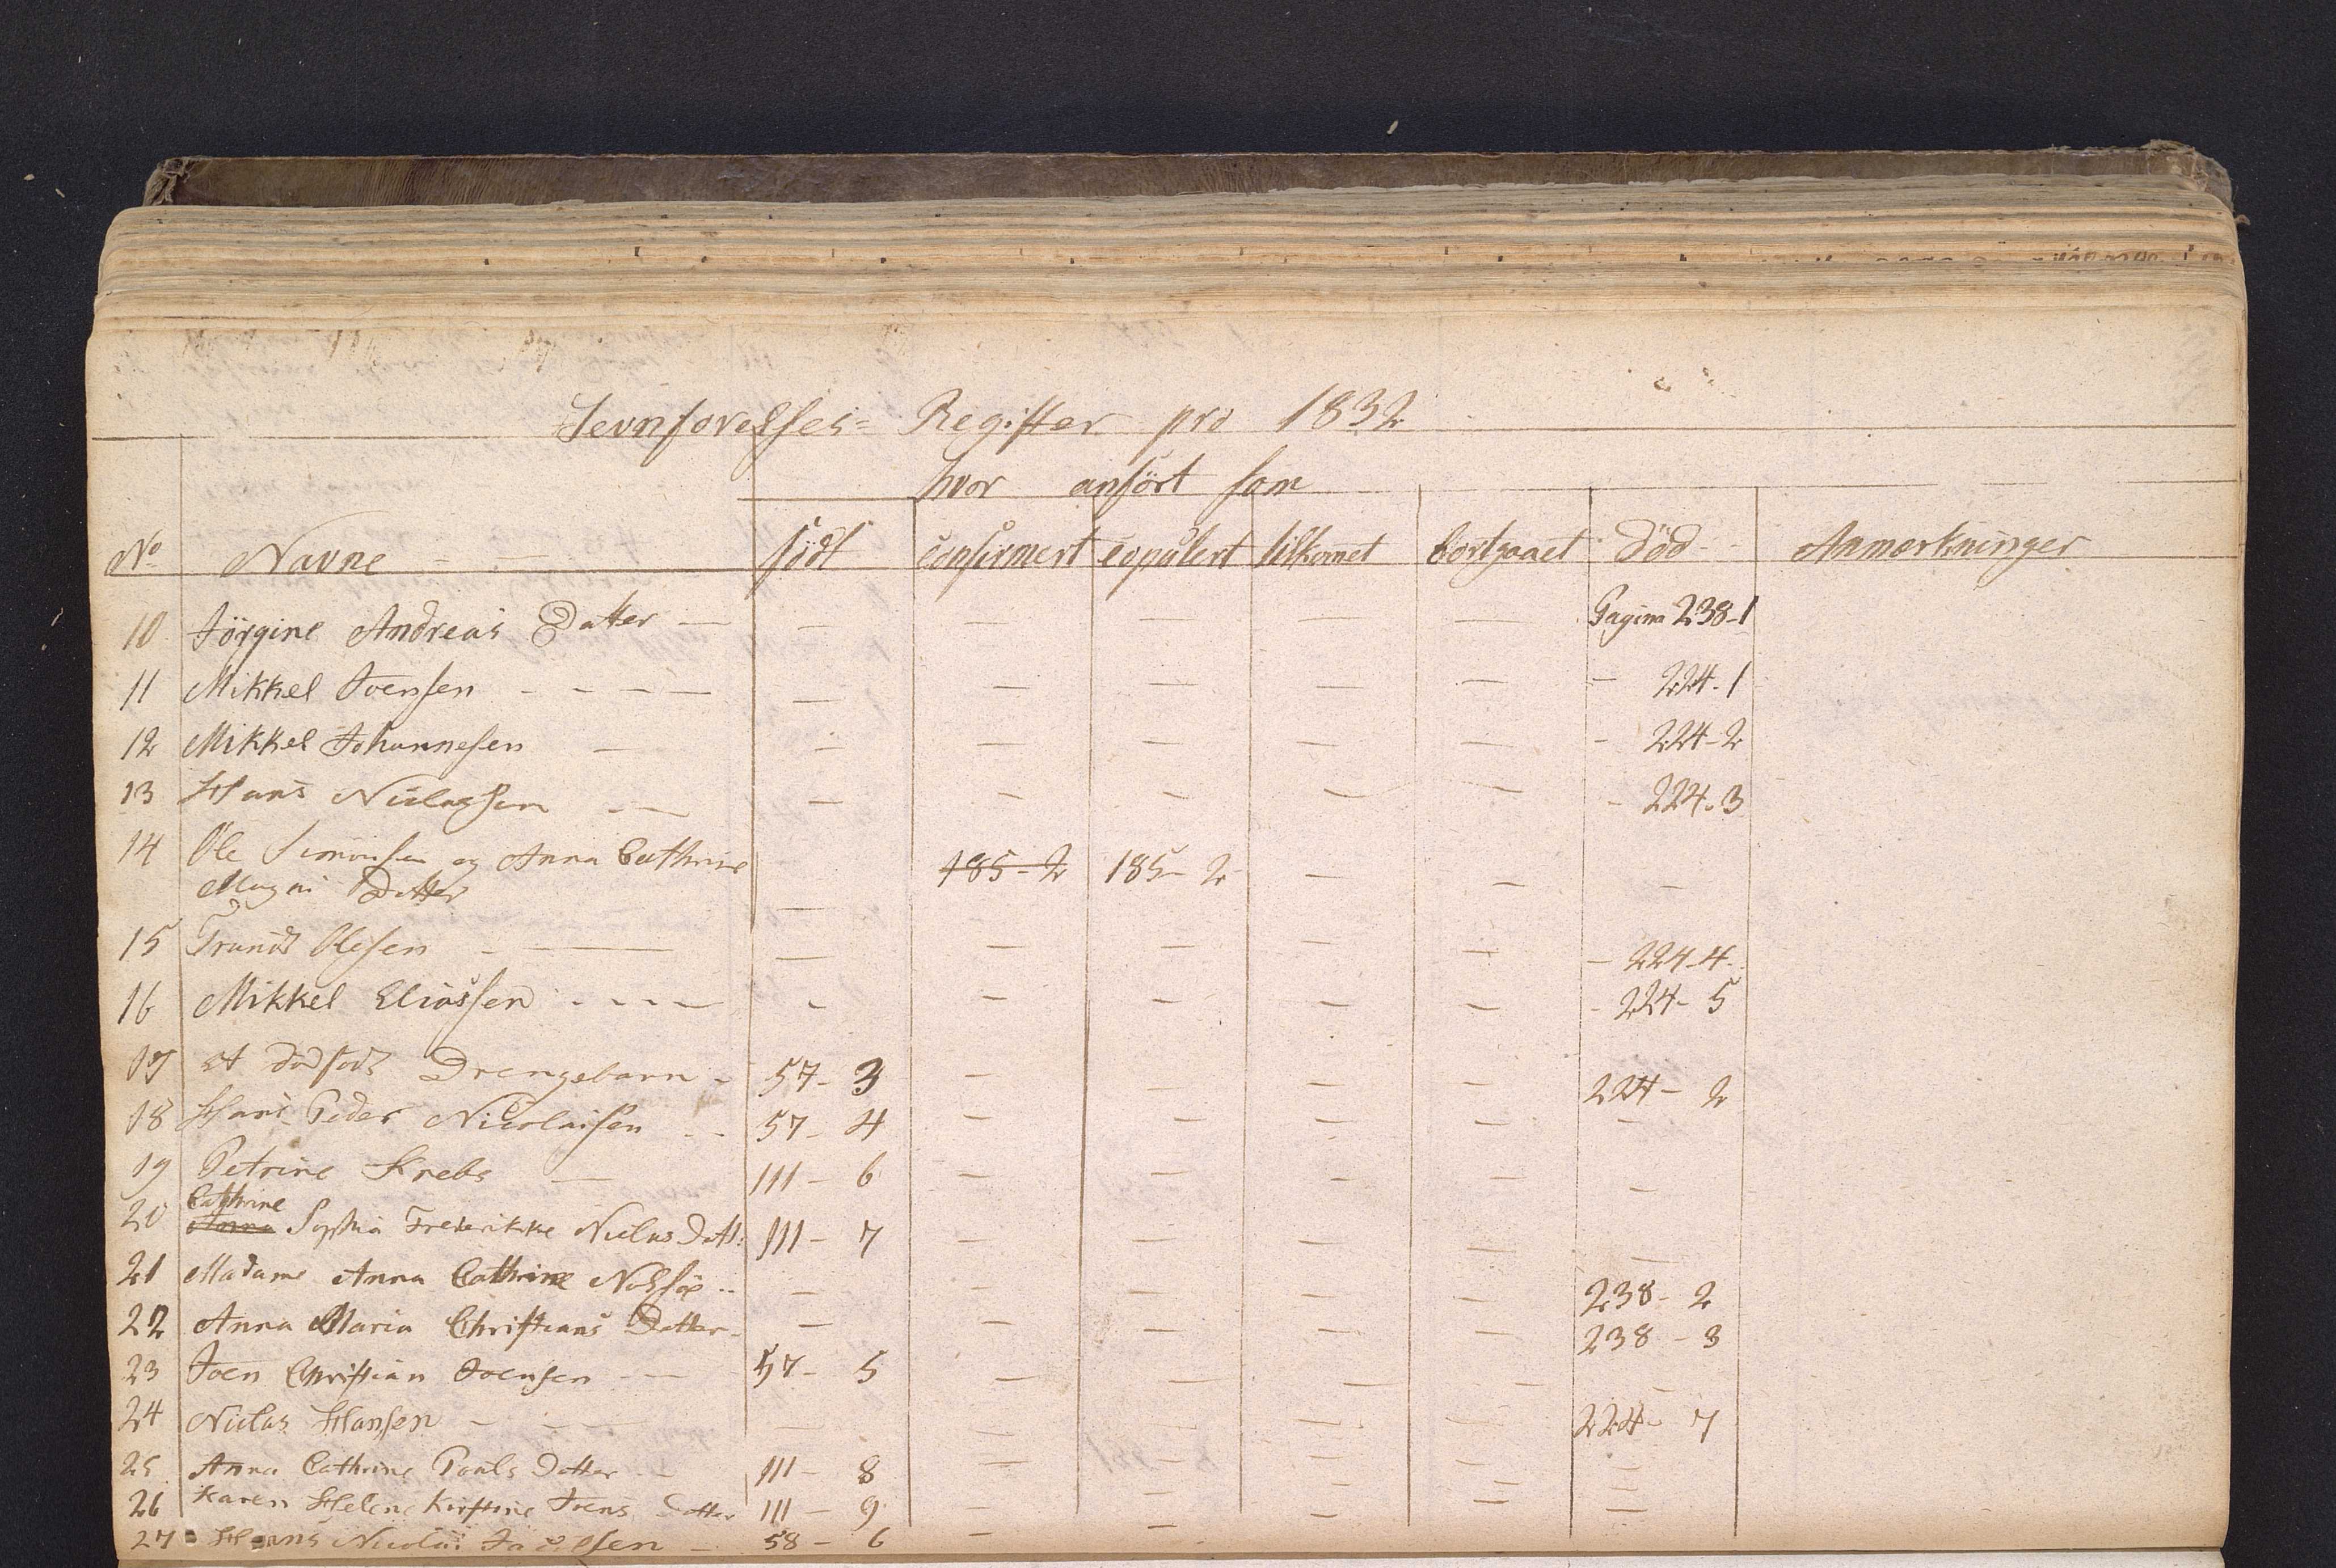 Jevnførelses= Register pro 1832
hvor anført som
No Navne - - født confirmert copulert tilkomet bortgaaet død - Anmærkninger
10 Jörgine Andreas Datter — — — — — — Pagina 238-1
11 Mikkel Joensen - - - — — — — — — - 224-1
12 Mikkel Johannesen — — — — — — - 224-2
13 Hans Niclassen — — — — — — - 224-3
14 Ole Simonsen og Anna Cathrine 185-2 185-2 — — —
Magni Datter —
15 Trund Olesen - — — — — — — - 224-4
16 Mikkel Eliassen - - - — - — — — — - 224-5
17 et dødfødt Drengebarn - 57-3 — — — — 224-2
18 Hans Peder Nicolaisen - - 57-4 — — — — —
19 Petrine Krebs — 111-6 — — — — —
Cathrine
20 Anna Sophia Frederikke Niclas Datt: 111-7 — — — — —
21 Madame Anna Cathrine Nolsøe -- — — — — — 238-2
22 Anna Maria Christians Datter - — — — — — 238-3
23 Joen Christian Joensen - — 57-5 — — — — —
24 Niclas Hansen - - — — — — — — 224-7
25 Anna Cathrine Pouls Datter — 111-8 — — — — —
26 Karen Helene Kirstine Joens Datter 111-9 — — — — —
27 Hans Nicolai — 58-6 — — —